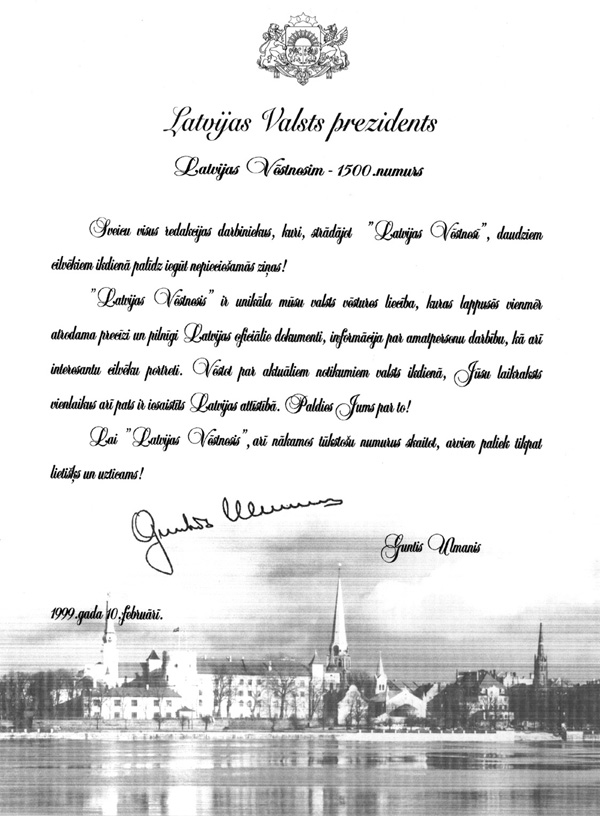 Latvijas Valsts prezidents
Latvijas Vēstnesim - 1500.numurs
Sveicu visus redakcijas darbiniekus, kuri, strādājot "Latvijas Vēstnesī", daudziem
cilvēkiem ikdienā palīdz iegūt nepieciešamās ziņas!
"Latvijas Vēstnesis" ir unikāla mūsu valsts vēstures liecība, kuras lappusēs vienmēr
atrodama precīzi un pilnīgi Latvijas oficiālie dokumenti, informācija par amatpersonu darbību, kā arī
interesantu cilvēku portreti. Vēstot par aktuāliem notikumiem valsts ikdienā, Jūsu laikraksts
vienlaikus arī pats ir iesaistīts Latvijas attīstībā. Paldies Jums par to!
Lai "Latvijas Vēstnesis", arī nākamos tūkstošu numurus skaitot, arvien paliek tikpat
lietišķs un uzticams!
Guntis Ulmanis
Guntis Ulmanis
1999.gada 10.februārī.